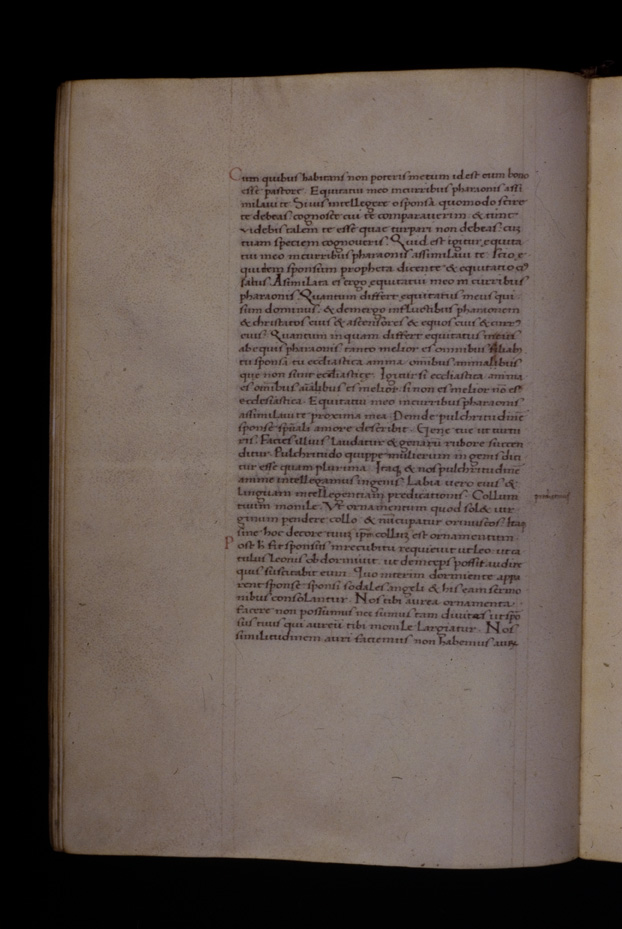 Cum quibus habitans non poteris metum id est cum bono
esse pastore. Equitatui meo incurribus pharaonis assi
milaui te. Si uis intellegere osponsa quomodo scire
te debeas. cognosce cui te comparauerim. & tunc
uidebis talem te esse quae turpari non debeas. cū
tuam speciem cognoueris. Quid est igitur equita
tui meo incurribus pharaonis assimilaui te. Scio e
quitem sponsum propheta dicente & equitatio ei
salus. Asimilata es ergo equitatui meo in curribus
pharaonis. Quantum differt equitatus meus qui
sum dominus. & demergo influctibus pharaonem
& eius & ascensores & equos eius & curr
eius. Quantum inquam differt equitatus meus
abequis pharaonis. tanto melior es omnibus filiab;
tu sponsa. tu ecclesiastica anima. omnibus animalibus
que non sunt ecclesiastice. Igitur si ecclesiastica anima
es omībus aīalibus es melior. si non es melior nō es
ecclesiastica. Equitatui meo incurribus pharaonis
assimilaui te proxima mea. Deinde pulchritudinē
sponse spīiali amore describit. Gene tue ut turtu
ris. Facies illius laudatur & genarū rubore succen
ditur. Pulchritudo quippe mulierum in genis dici
tur esse quam plurima. Itaq; & nos pulchritudinē
anime intellegamus ingenis. Labia uero eius &
linguam intellegentiam predicationis. Collum
tuum monile. Vt ornamentum quod sol& uir
ginum pendere collo. & nūcupatur ormiscos. Itaq;
sine hoc decore tuū ipm̄ collū est ornamentum.
Post h sit sponsus inrecubitu requieuit ut leo. ut ca
tulus leonis obdormiuit. ut deinceps possit audire
quis suscitabit eum. Quo interim dormiente appa
rent sponse sponsi sodales angeli & his eam sermo
nibus consolantur. Nos tibi aurea ornamenta
facere non possumus nec sumus tam diuites ut spō
sus tuus qui aureū tibi monile largiatur. Nos
similitudinem auri faciemus non habemus aurū